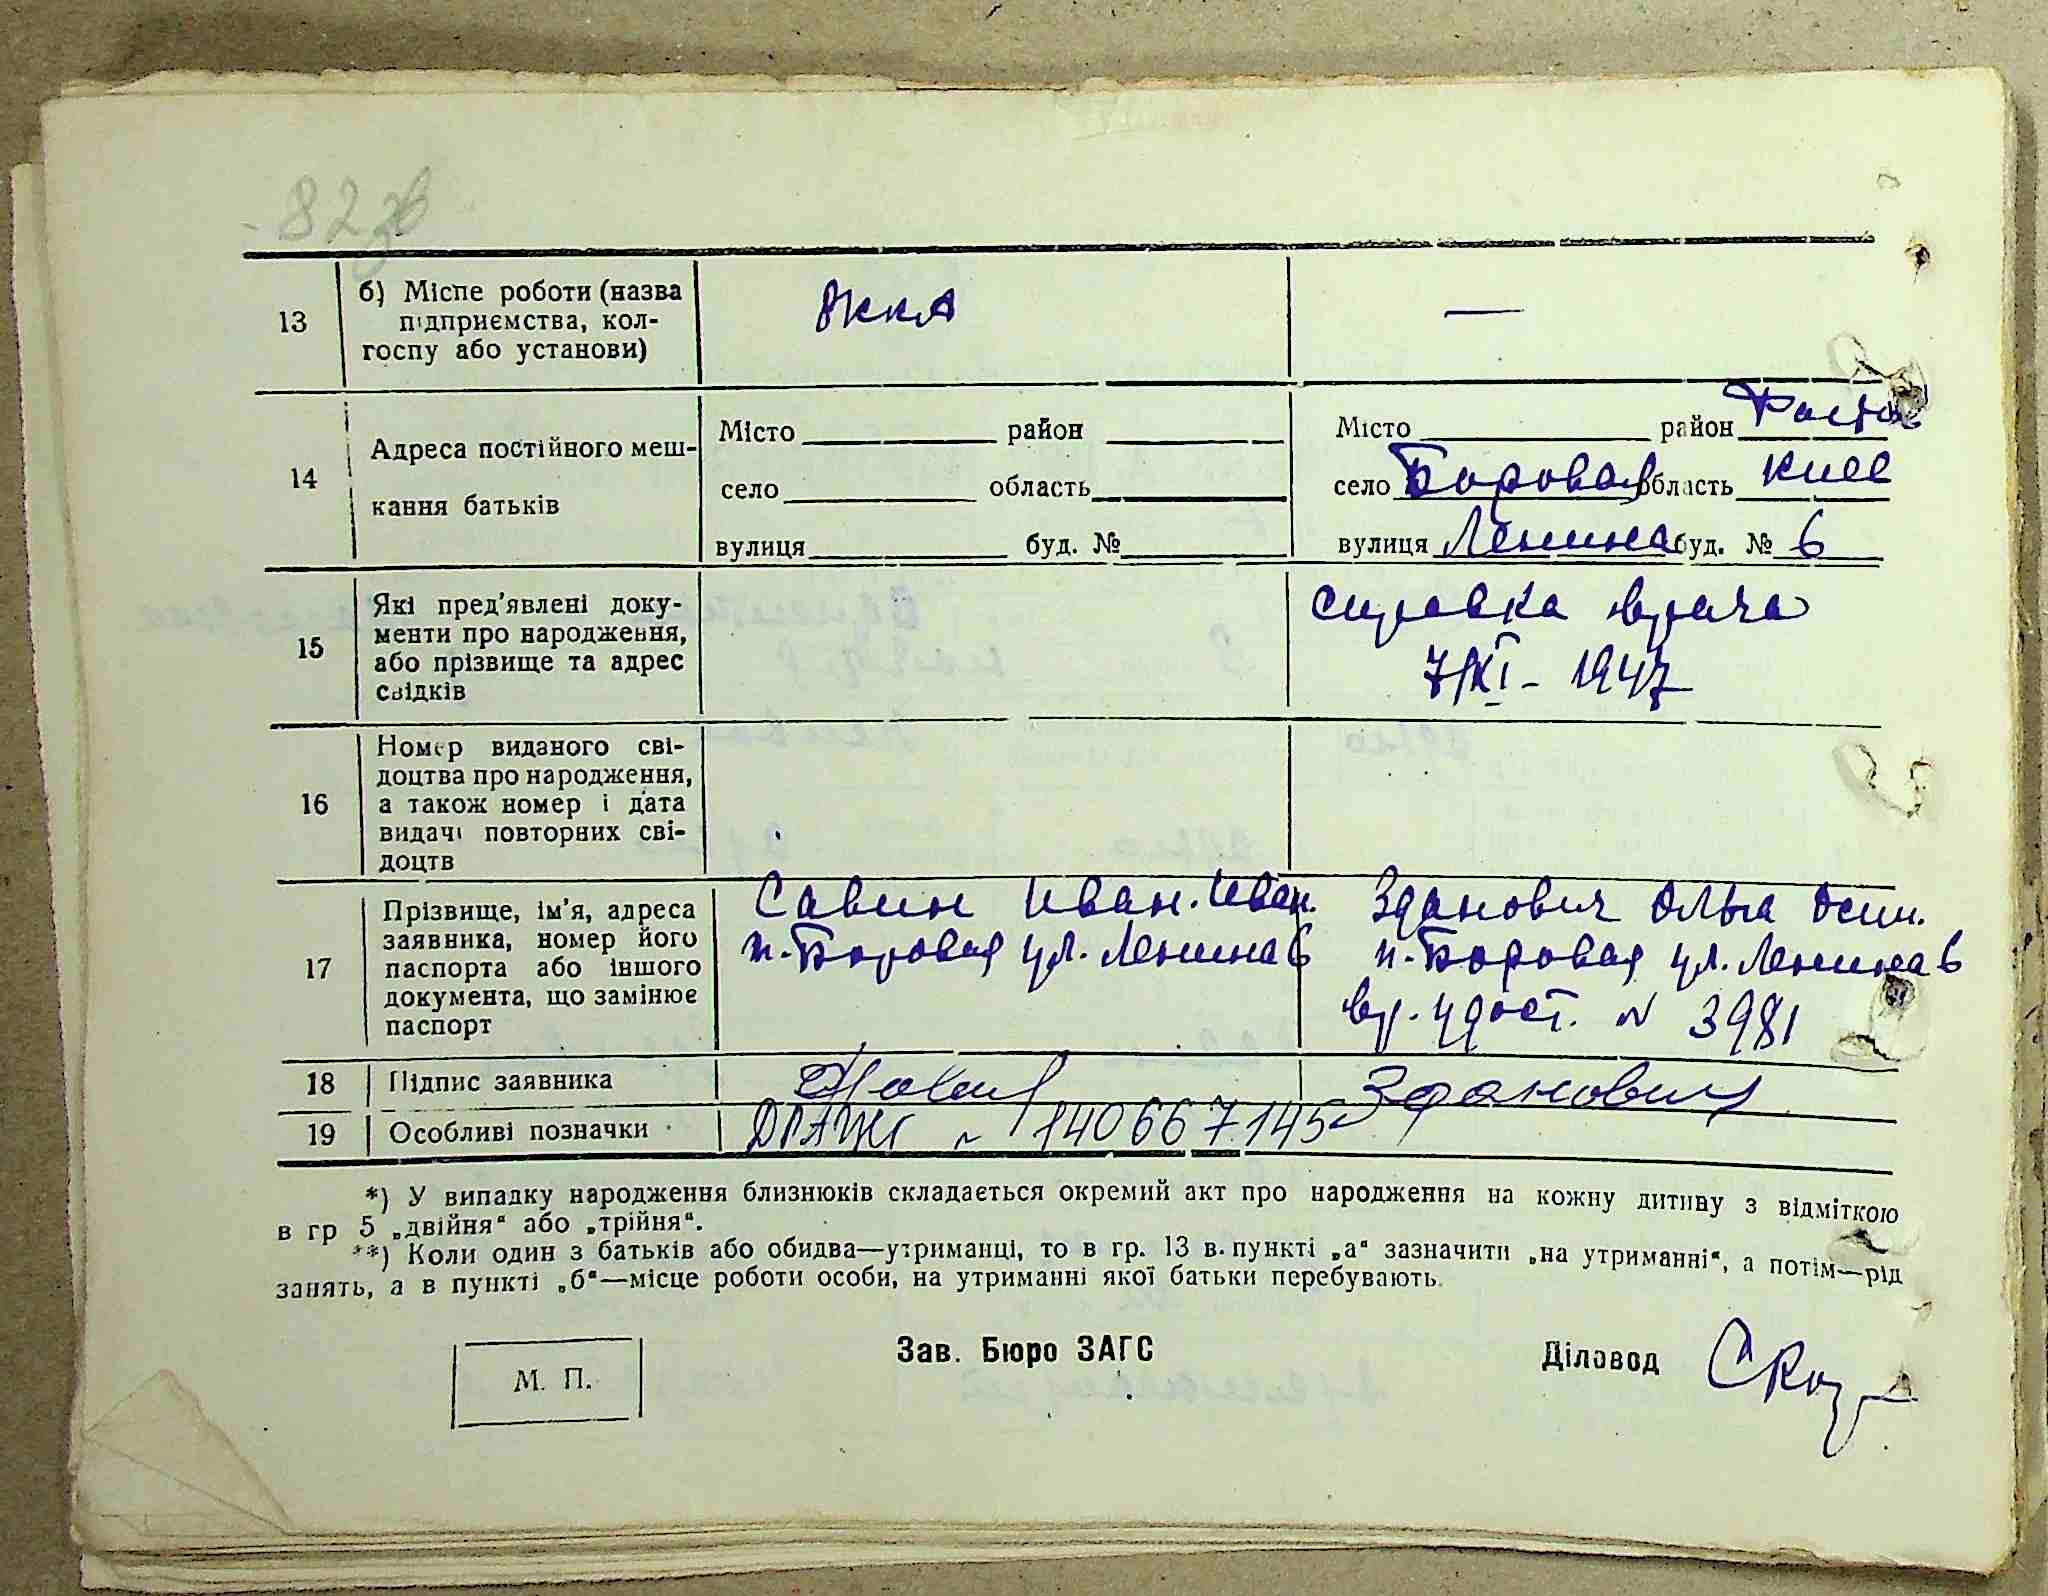 82зв
13
б) Місце роботи (назва
підприємства, кол-
госпу або установи)
ВККА
—
14
Адреса постійного меш-
кання батьків
Місто район
село область
вулиця буд. №
Місто район Фастов
село Боровая область Киев
вулиця Ленина буд. № 6
15
Які пред'явлені доку-
менти про народження,
або прізвище та адрес
свідків
справка врача
7/XI - 1947
16
Номер виданого сві-
доцтва про народження,
а також номер і дата
видачі повторних сві-
доцтв
17
Прізвище, ім'я, адреса
заявника, номер його
паспорта або іншого
документа, що замінює
паспорт
Савин Иван. Иван.
п. Боровая ул. Ленина 6
Зданович Ольга Осип.
п. Боровая ул. Ленина 6
вр. удост. N 3981
18
Підпис заявника
Зданович
19
Особливі позначки
N 140667145
*) У випадку народження близнюків складається окремий акт про народження на кожну дитину з відміткою
в гр 5 „двійня“ або „трійня“.
**) Коли один з батьків або обидва—утриманці, то в гр. 13 в. пункті „а“ зазначити „на утриманні“, а потім—рід
занять, а в пункті „б“—місце роботи особи, на утриманні якої батьки перебувають.
М. П.
Зав. Бюро ЗАГС
Діловод